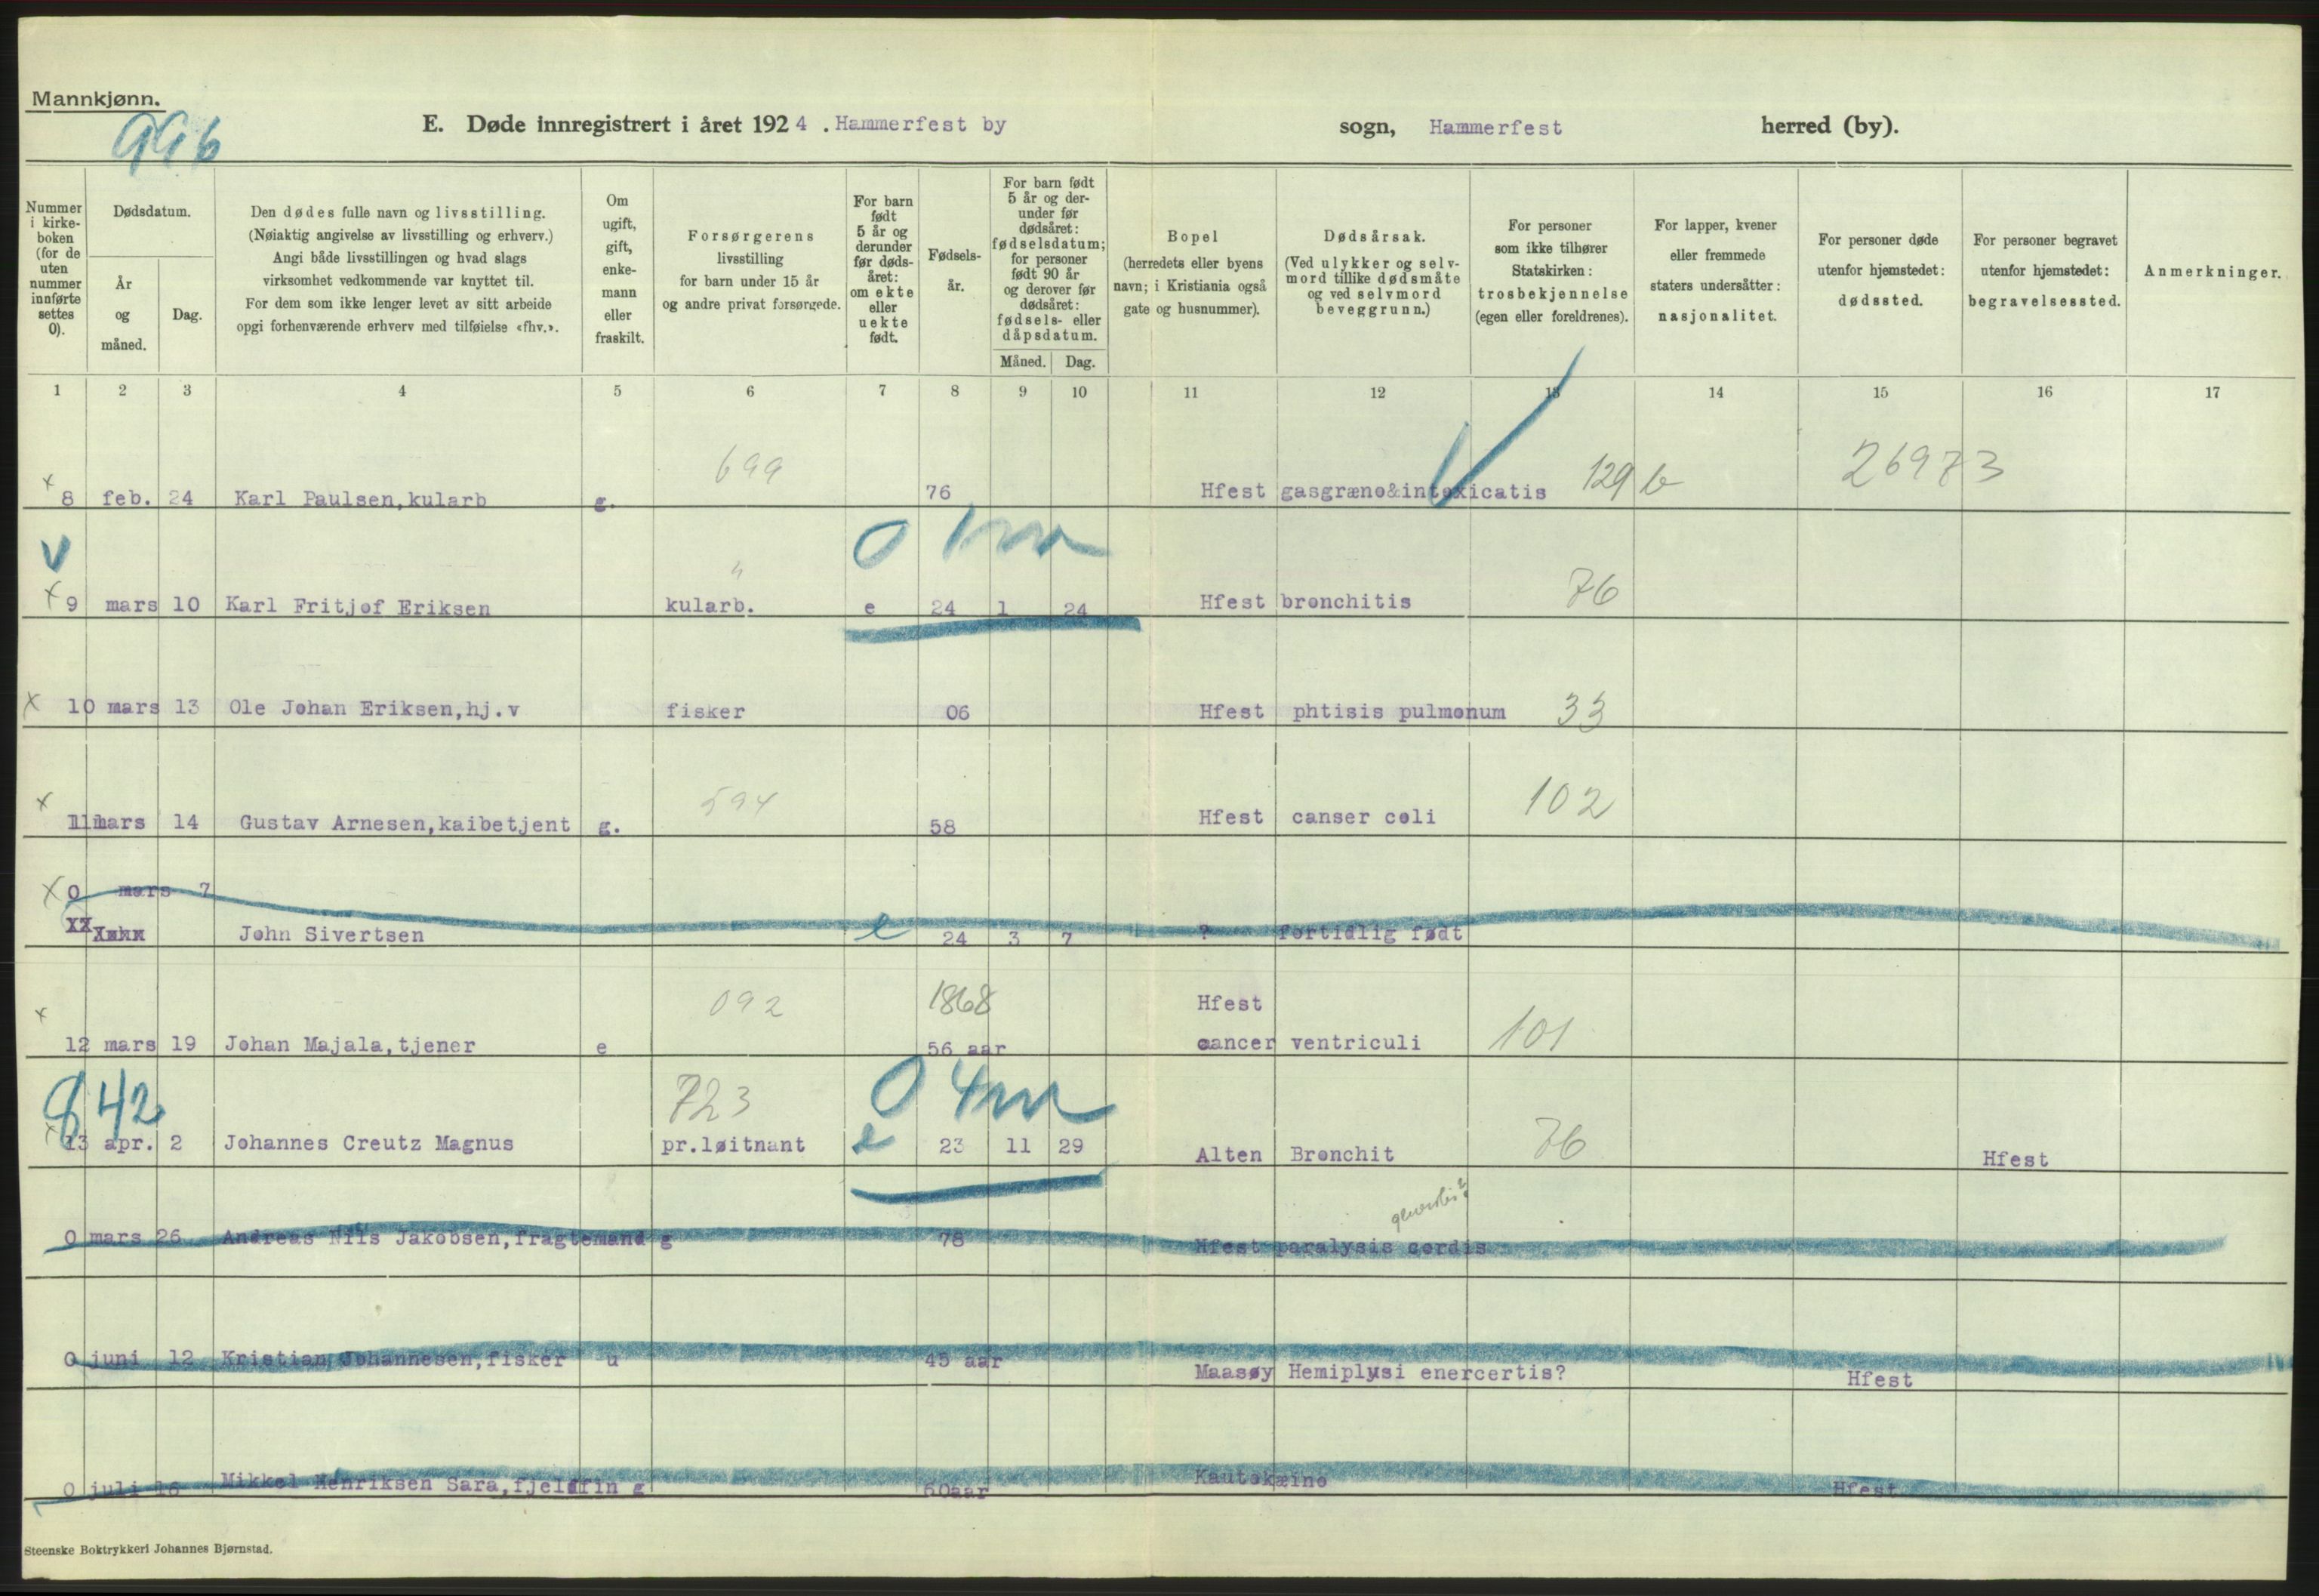 Mannkjønn.
996
E. Døde innregistrert i året 1924. Hammerfest by sogn, Hammerfest herred (by).
Nummer i kirkeboken (for de uten nummer innførte settes 0).
Dødsdatum.
År og måned.
Dag.
Den dødes fulle navn og livsstilling.
(Nøiaktig angivelse av livsstilling og erhverv.)
Angi både livsstillingen og hvad slags
virksomhet vedkommende var knyttet til.
For dem som ikke lenger levet av sitt arbeide
opgi forhenværende erhverv med tilføielse «fhv.».
Om ugift, gift, enkemann eller fraskilt.
Forsørgerens
livsstilling
for barn under 15 år
og andre privat forsørgede.
For barn født 5 år og derunder før dødsåret: om ekte eller uekte født.
Fødselsår.
For barn født 5 år og derunder før dødsåret: fødselsdatum; for personer født 90 år og derover før dødsåret: fødsels- eller dåpsdatum.
Måned. Dag.
Bopel
(herredets eller byens
navn; i Kristiania også
gate og husnummer).
Dødsårsak.
(Ved ulykker og selv-
mord tillike dødsmåte
og ved selvmord
beveggrunn.)
For personer
som ikke tilhører
Statskirken:
trosbekjennelse
(egen eller foreldrenes).
For lapper, kvener
eller fremmede
staters undersåtter:
nasjonalitet.
For personer døde
utenfor hjemstedet:
dødssted.
For personer begravet
utenfor hjemstedet:
begravelsessted.
Anmerkninger.
1 2 3 4 5 6 7 8 9 10 11 12 13 14 15 16 17
699 26973
x 8 feb. 24 Karl Paulsen,kularb g. 76 Hfest gasgræne&intoxicatis 129 b
V 0 1 m
x 9 mars 10 Karl Fritjof Eriksen " kularb. e 24 1 24 Hfest bronchitis 76
x 10 mars 13 Ole Johan Eriksen,hj.v fisker 06 Hfest phtisis pulmonum 33
594
x 11mars 14 Gustav Arnesen,kaibetjent g. 58 Hfest canser coli 102
x 0 mars 7
John Sivertsen e 24 3 7 ? fortidlig født
092 1868 Hfest
x 12 mars 19 Johan Majala,tjener e 56 aar cancer ventriculi 101
842 723 0 4 m
x 13 apr. 2 Johannes Creutz Magnus pr.løitnant e 23 11 29 Alten Bronchit 76 Hfest
0 mars 26 Andreas Nils Jakobsen,fragtemand g 78 Hfest paralysis cordis
0 juni 12 Kristian Johannesen,fisker u 45 aar Maasøy Hemiplysi enercertis? Hfest
0 juli 16 Mikkel Henriksen Sara,fjeldfin g 60aar Kautokæino Hfest
Steenske Boktrykkeri Johannes Bjørnstad.